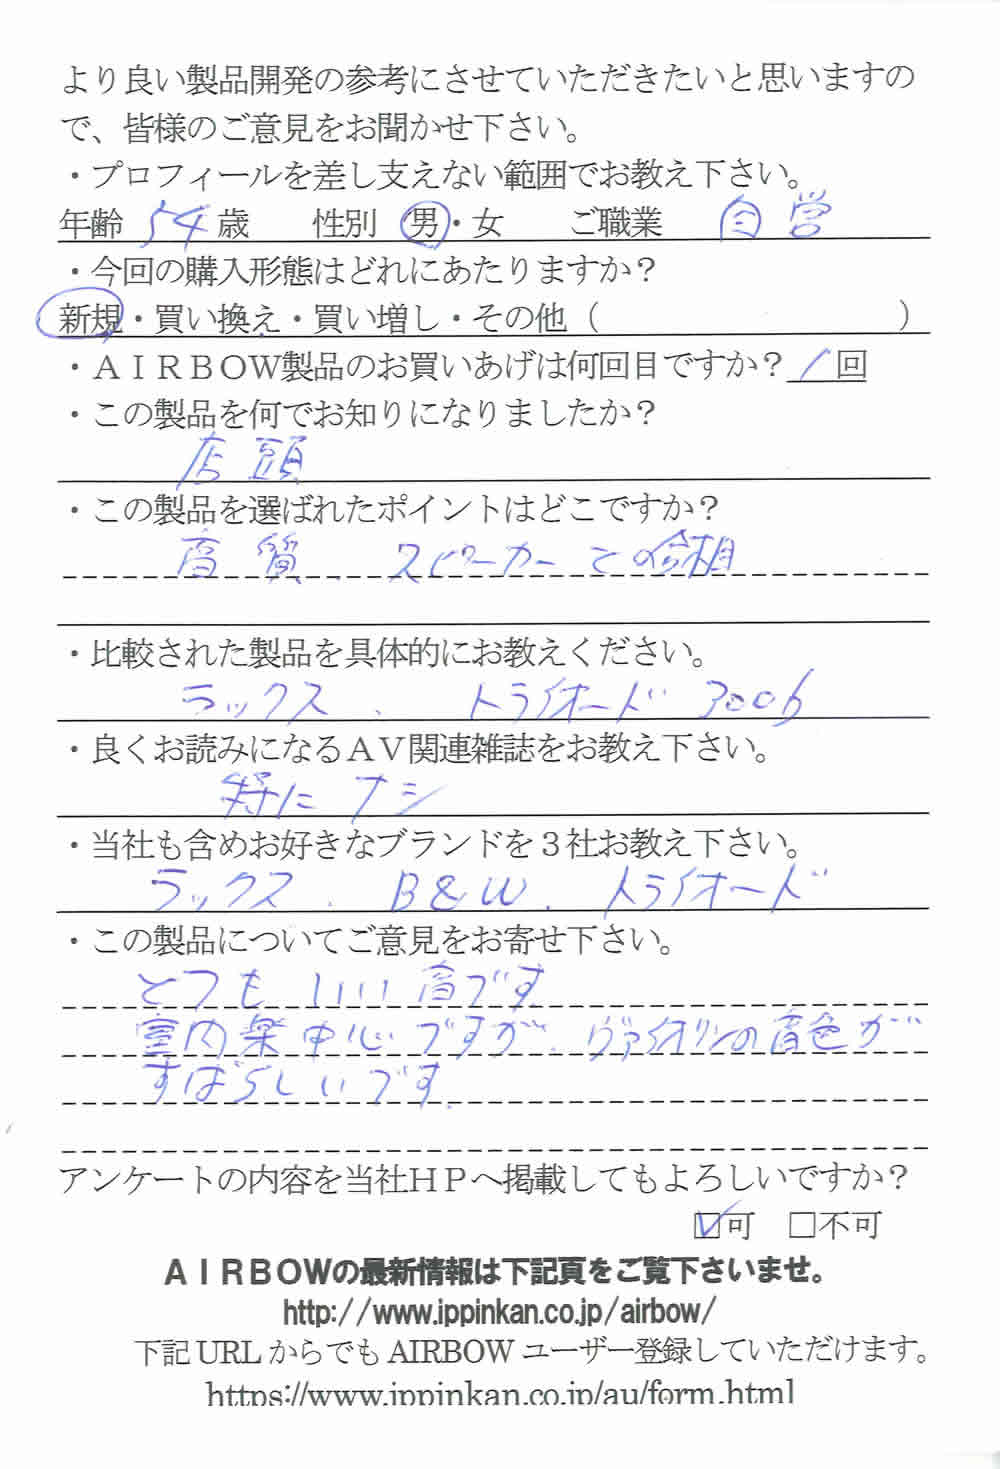 より良い製品開発の参考にさせていただきたいと思いますの
で、皆様のご意見をお聞かせ下さい。
・プロフィールを差し支えない範囲でお教え下さい。
年齢 54 歳 性別 男・女 ご職業 自営
・今回の購入形態はどれにあたりますか？
新規・買い換え・買い増し・その他（ ）
・ＡＩＲＢＯＷ製品のお買いあげは何回目ですか？ 1 回
・この製品を何でお知りになりましたか？
店頭
・この製品を選ばれたポイントはどこですか？
音質、スピーカーとの相
・比較された製品を具体的にお教えください。
ラックス、トライオード 300b
・良くお読みになるＡＶ関連雑誌をお教え下さい。
特にナシ
・当社も含めお好きなブランドを３社お教え下さい。
ラックス、B&W、トライオード
・この製品についてご意見をお寄せ下さい。
とてもいい音です
室内楽中心ですが、ヴァイオリンの音色が
すばらしいです。
アンケートの内容を当社ＨＰへ掲載してもよろしいですか？
☑可 □不可
ＡＩＲＢＯＷの最新情報は下記頁をご覧下さいませ。
http://www.ippinkan.co.jp/airbow/
下記 URL からでも AIRBOW ユーザー登録していただけます。
https://www.ippinkan.co.jp/au/form.html